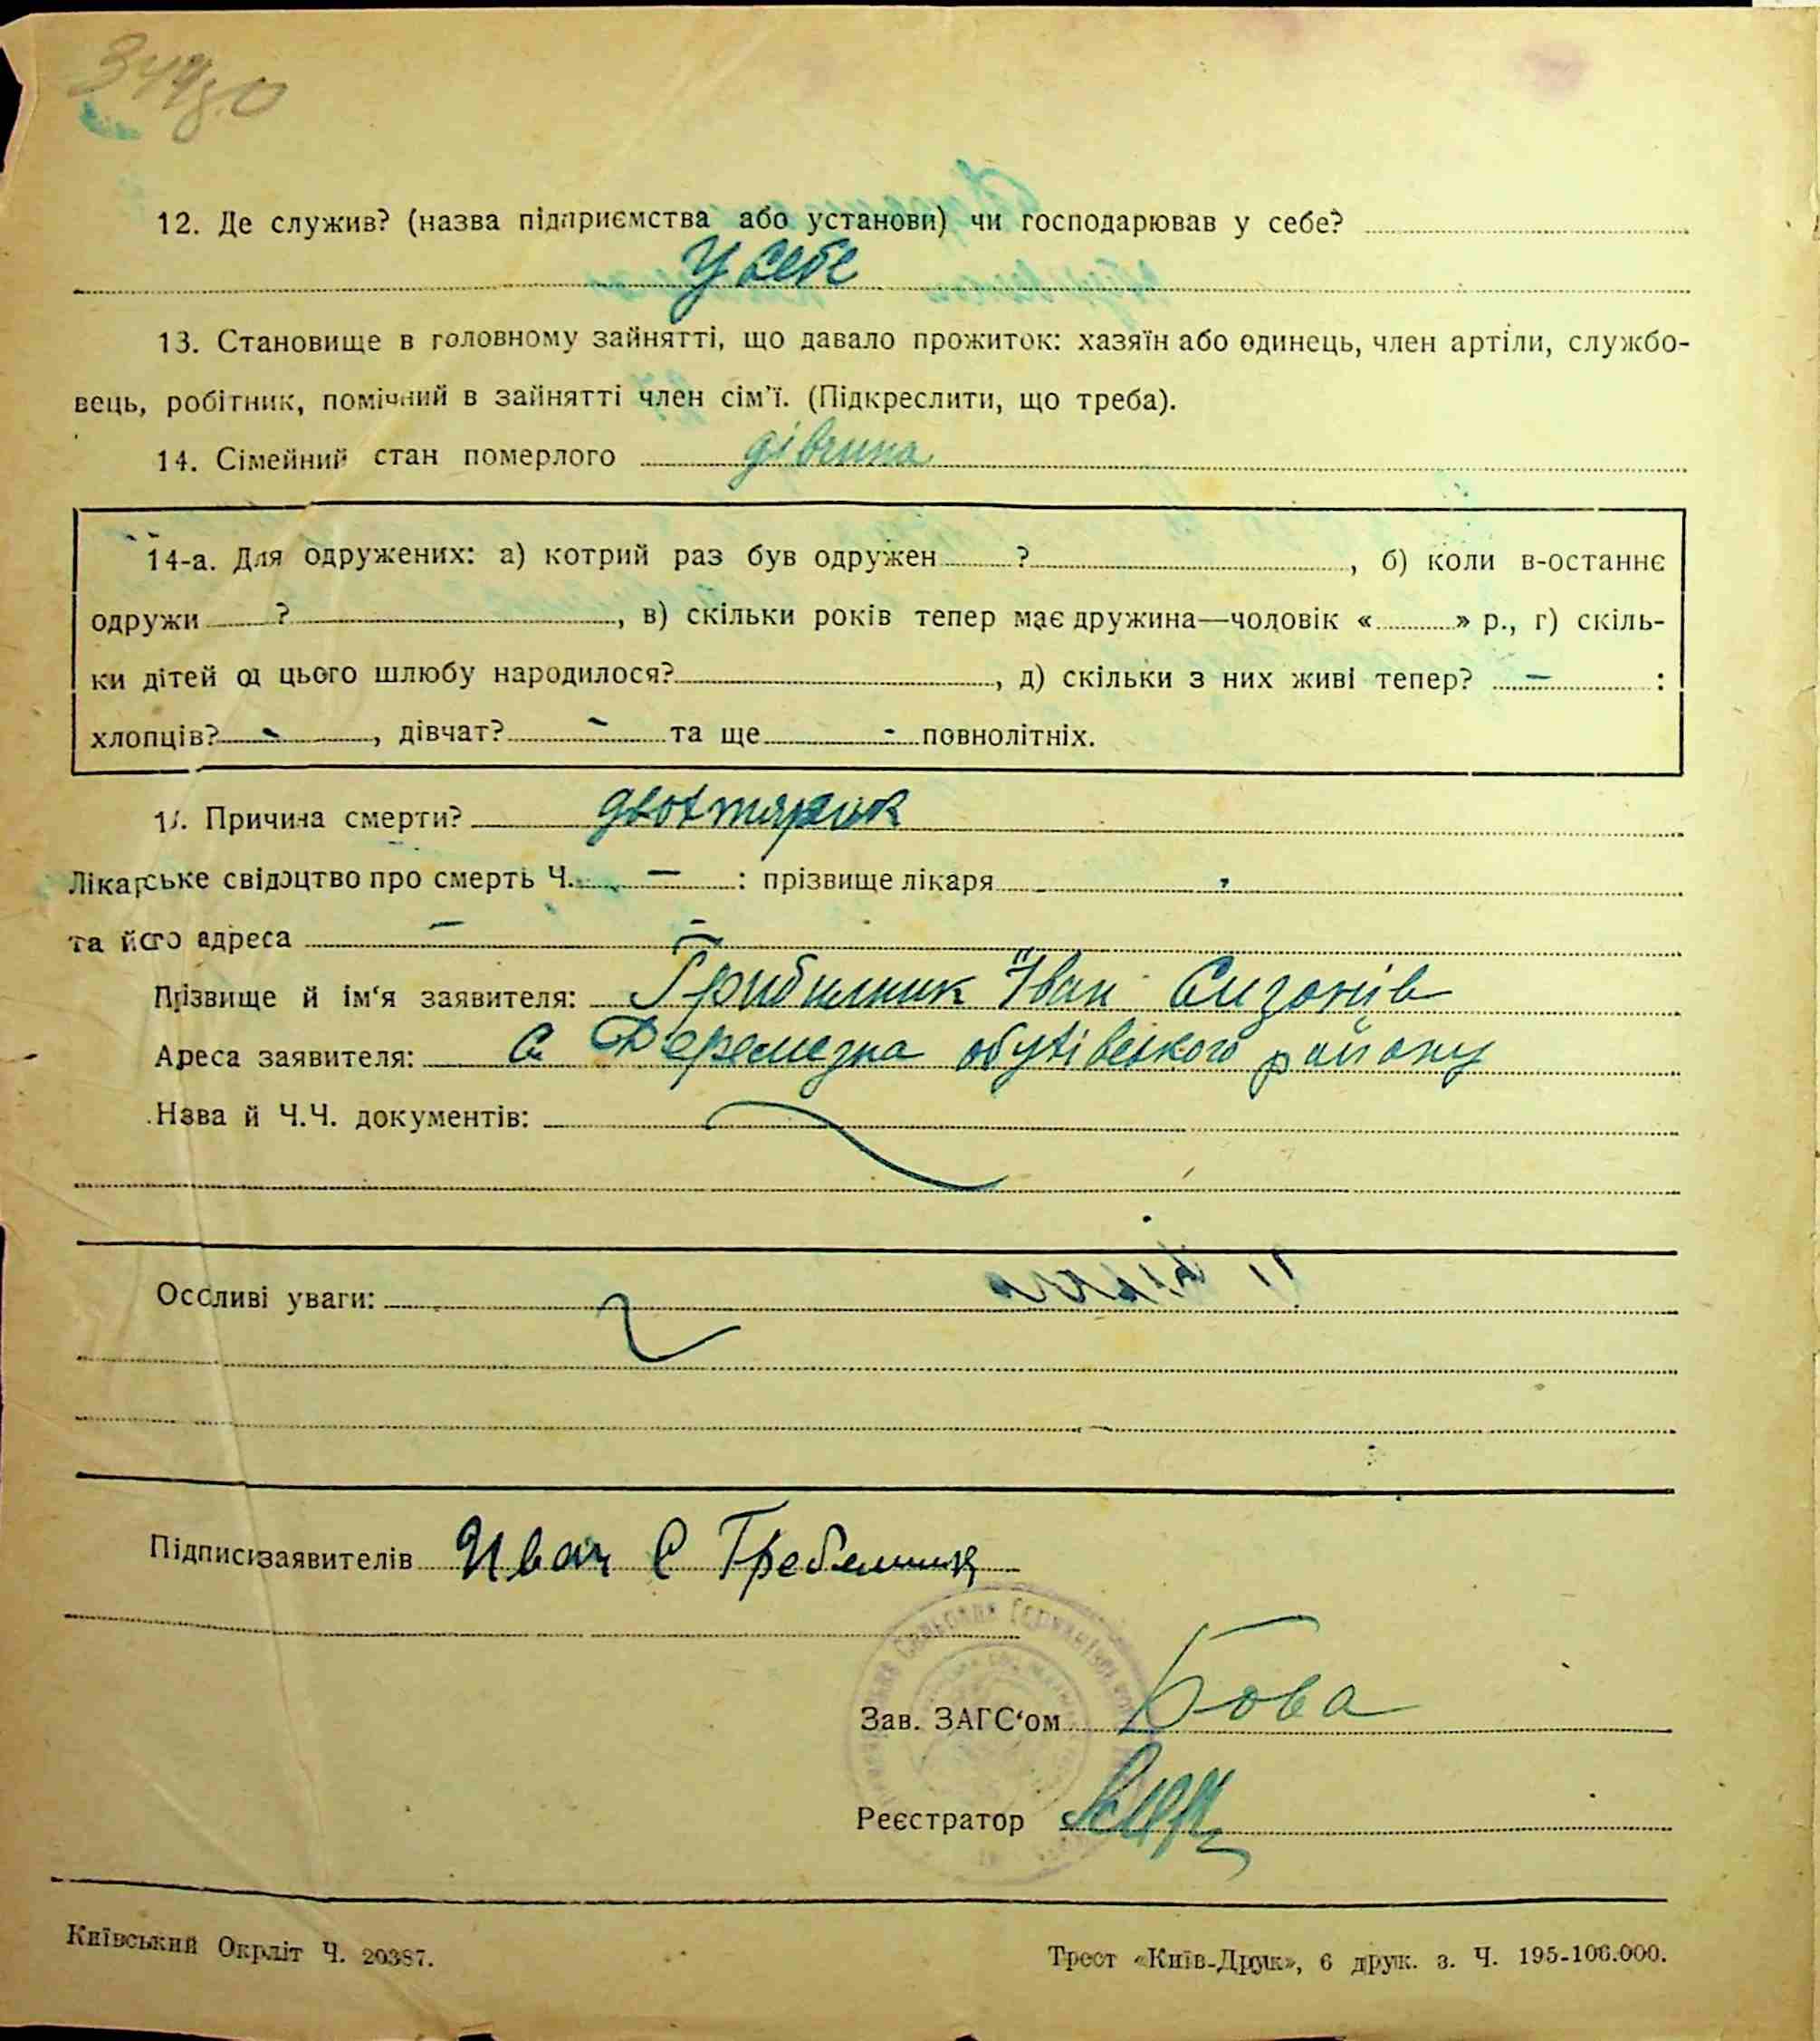 12. Де служив? (назва підприємства або установи) чи господарював у себе?
У себе
13. Становище в головному зайнятті, що давало прожиток: хазяїн або одинець, член артіли, службо-
вець, робітник, помічний в зайнятті член сім'ї. (Підкреслити, що треба).
14. Сімейний стан померлого дівчина
14-а. Для одружених: а) котрий раз був одружен ? , б) коли в-останнє
одружи ? , в) скільки років тепер має дружина—чоловік « » р., г) скіль-
ки дітей од цього шлюбу народилося? , д) скільки з них живі тепер? — :
хлопців? - , дівчат? - та ще - повнолітніх.
Причина смерти?
Лікарське свідоцтво про смерть Ч. — : прізвище лікаря
та його адреса —
Прізвище й ім'я заявителя: Грибилник Іван Сизонів
Адреса заявителя: с Деремезна обухівського району
Назва й Ч.Ч. документів:
Особливі уваги:
Підписи заявителів Иван С Гребелник
Зав. ЗАГС'ом Бова
Реєстратор
Київський Окрліт Ч. 20387.
Трест «Київ-Друк», 6 друк. з. Ч. 195-106.000.